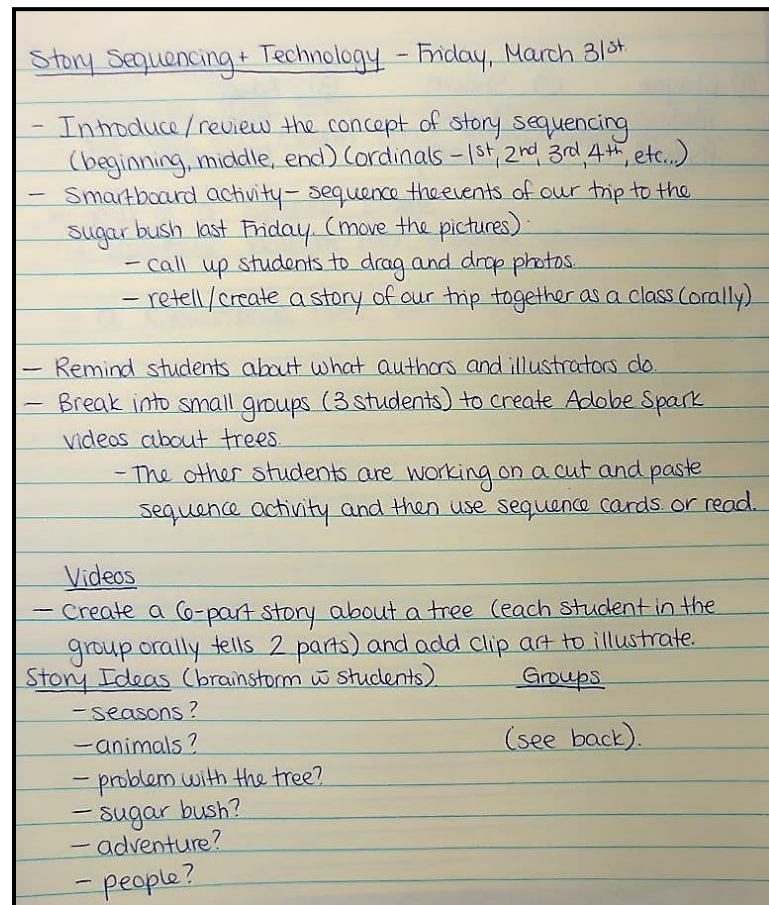 Story Sequencing + Technology - Friday, March 31st
- Introduce/review the concept of story sequencing
(beginning, middle, end) (ordinals - 1st, 2nd, 3rd, 4th, etc...)
- Smartboard activity - sequence the events of our trip to the
sugar bush last Friday. (move the pictures)
- call up students to drag and drop photos.
- retell/create a story of our trip together as a class (orally)
- Remind students about what authors and illustrators do.
- Break into small groups (3 students) to create Adobe Spark
videos about trees.
- The other students are working on a cut and paste
sequence activity and then use sequence cards or read.
Videos
- Create a 6-part story about a tree (each student in the
group orally tells 2 parts) and add clip art to illustrate.
Story Ideas (brainstorm w̄ students) Groups
- seasons?
- animals? (see back).
- problem with the tree?
- sugar bush?
- adventure?
- people?